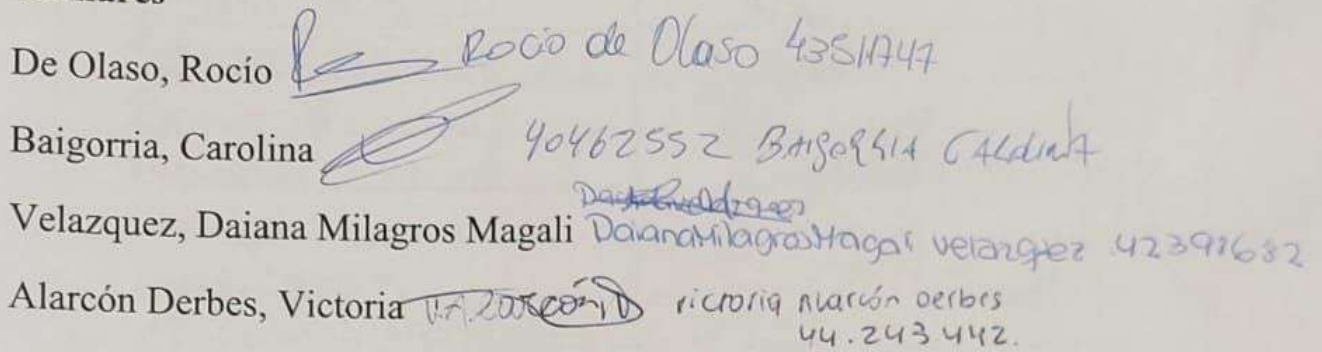 De Olaso, Rocío Rocio de Olaso 43511747
Baigorria, Carolina 40462552 BAIGORRIA CAROLINA
Velazquez, Daiana Milagros Magali Daiana Milagros Magali velazquez
Alarcón Derbes, Victoria V.A.larcón D victoria Alarcón Derbes
44.243442.